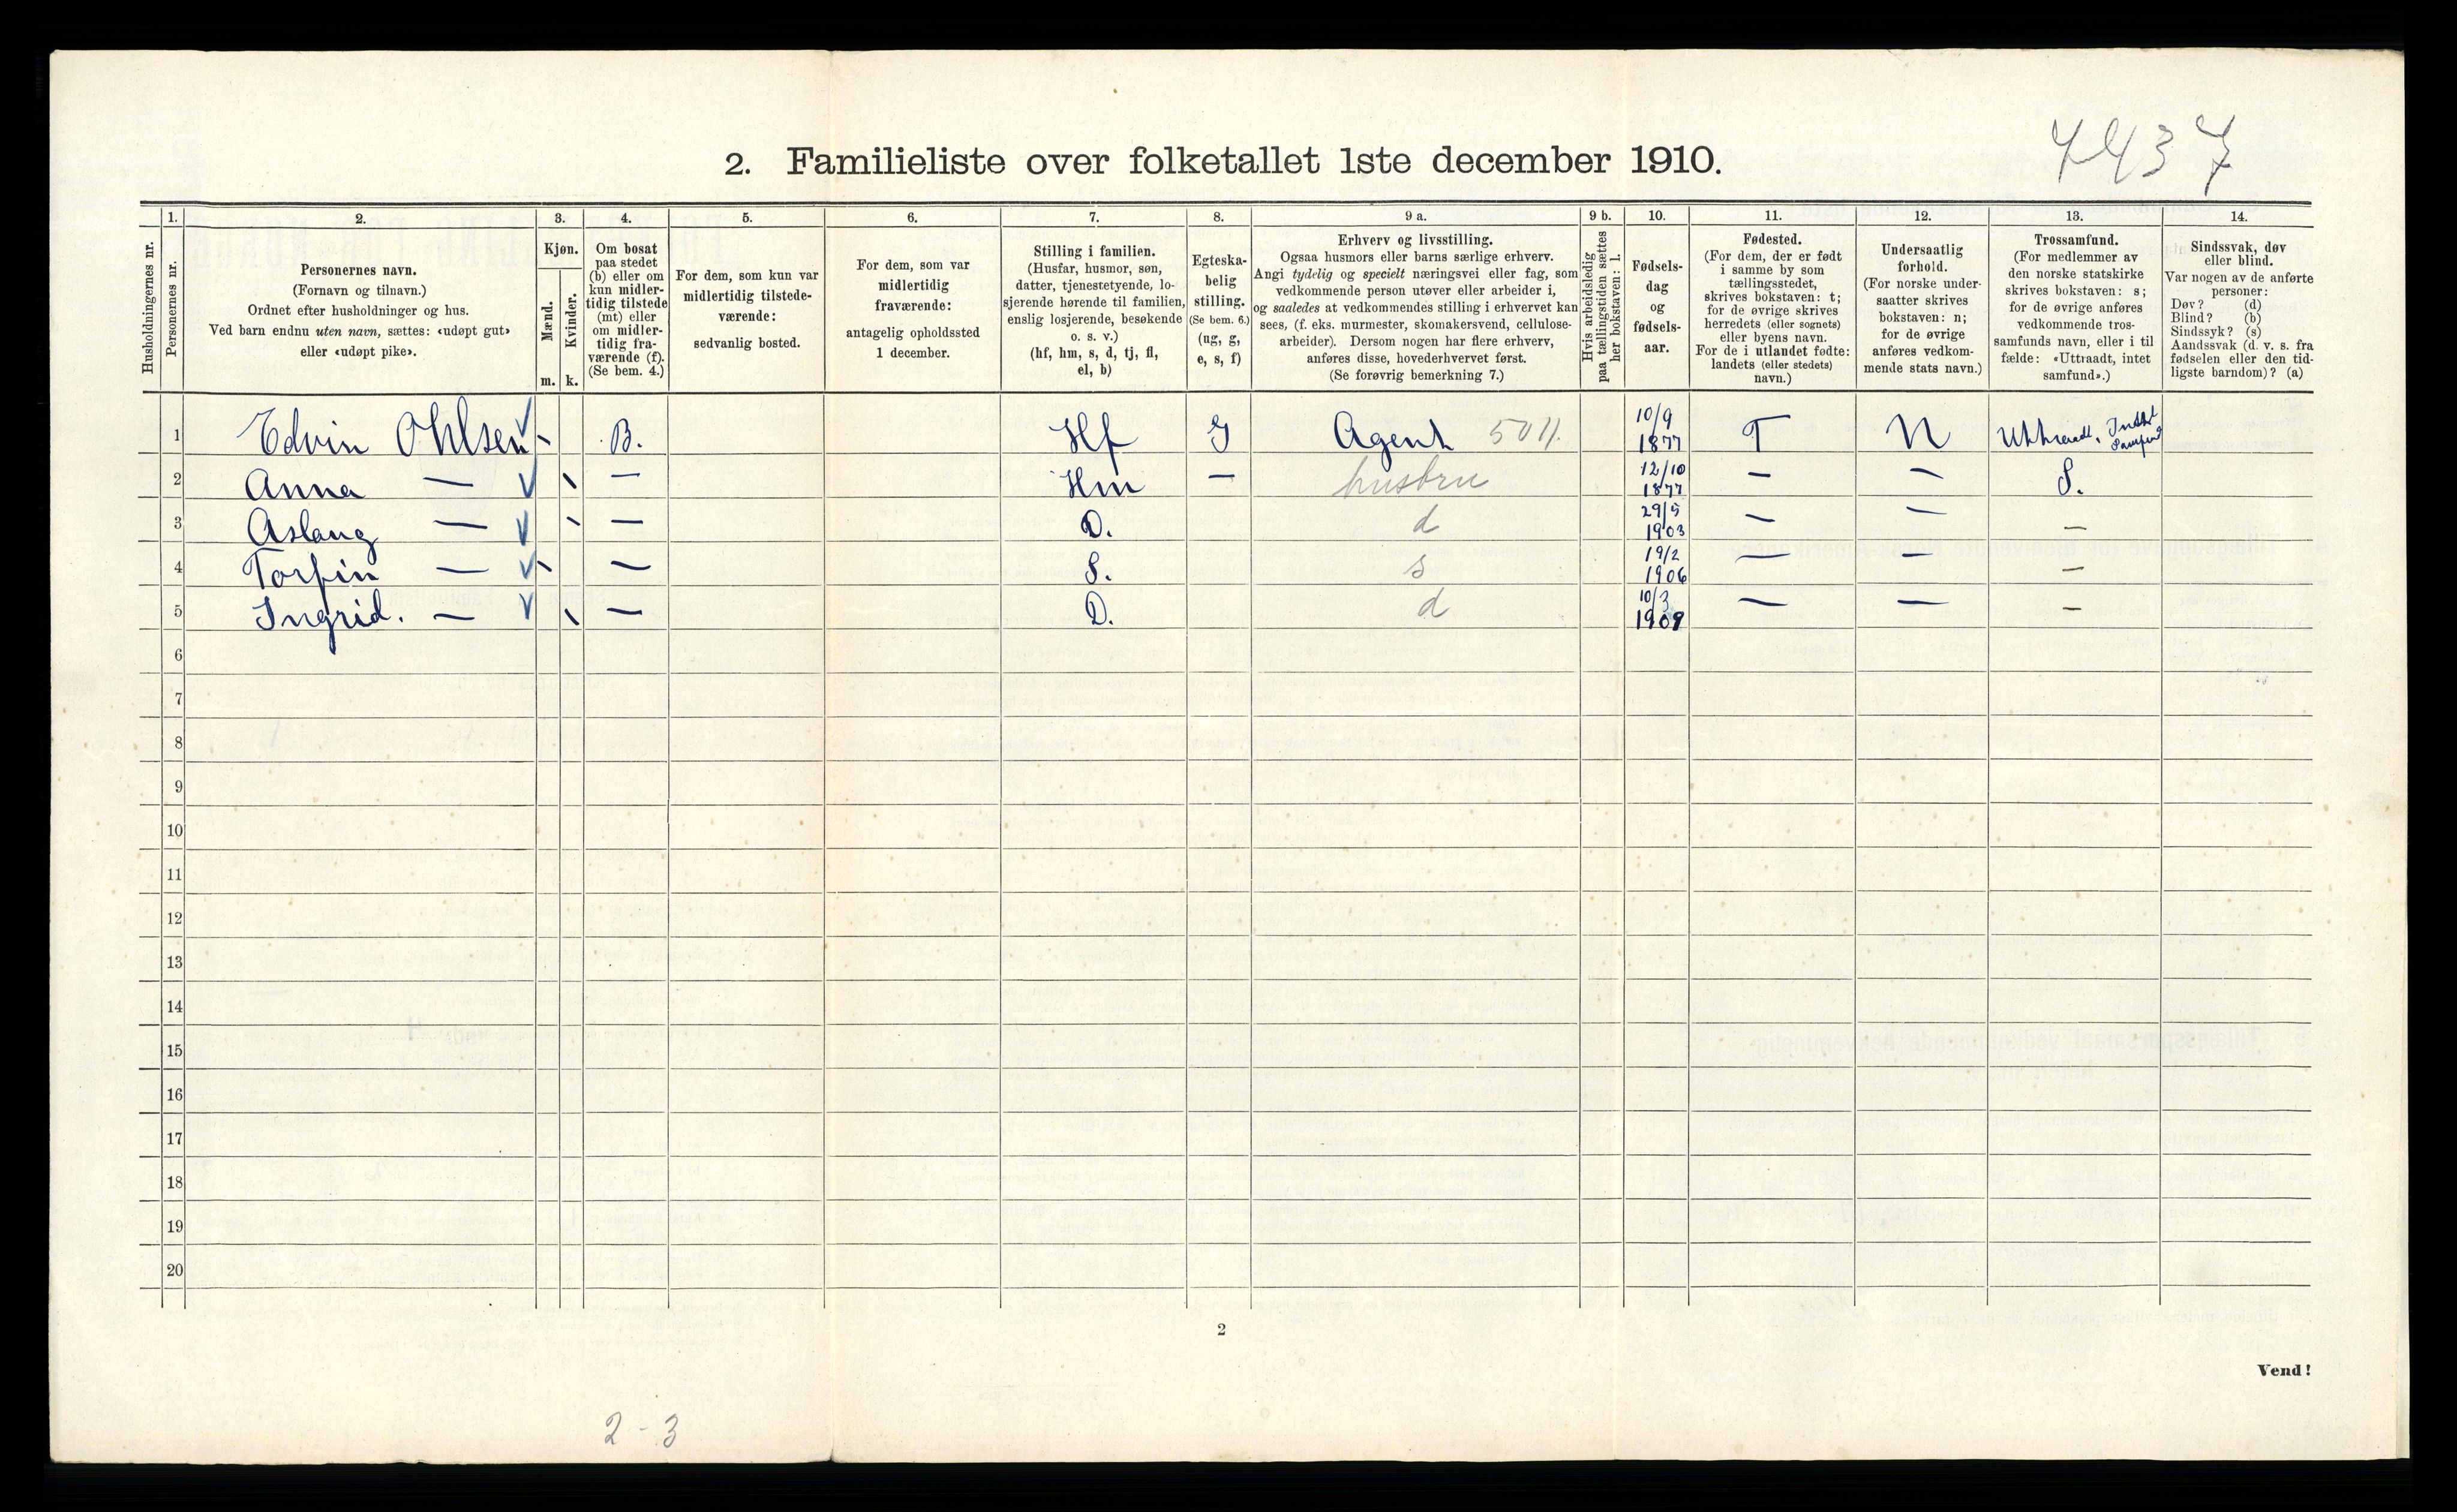 4437
2. Familieliste over folketallet 1ste december 1910.
Husholdningernes nr.
1.
Personernes nr.
2.
Personernes navn.
(Fornavn og tilnavn.)
Ordnet efter husholdninger og hus.
Ved barn endnu uten navn, sættes: «udøpt gut»
eller «udøpt pike».
3.
Kjøn.
Mænd.
Kvinder.
m. k.
4.
Om bosat
paa stedet
(b) eller om
kun midler-
tidig tilstede
(mt) eller
om midler-
tidig fra-
værende (f).
(Se bem. 4.)
5.
For dem, som kun var
midlertidig tilstede-
værende:
sedvanlig bosted.
6.
For dem, som var
midlertidig
fraværende:
antagelig opholdssted
1 december.
7.
Stilling i familien.
(Husfar, husmor, søn,
datter, tjenestetyende, lo-
sjerende hørende til familien,
enslig losjerende, besøkende
o. s. v.)
(hf, hm, s, d, tj, fl,
el, b)
8.
Egteska-
belig
stilling.
(Se bem. 6.)
(ug, g,
e, s, f)
9 a.
Erhverv og livsstilling.
Ogsaa husmors eller barns særlige erhverv.
Angi tydelig og specielt næringsvei eller fag, som
vedkommende person utøver eller arbeider i,
og saaledes at vedkommendes stilling i erhvervet kan
sees, (f. eks. murmester, skomakersvend, cellulose-
arbeider). Dersom nogen har flere erhverv,
anføres disse, hovederhvervet først.
(Se forøvrig bemerkning 7.)
9 b.
Hvis arbeidsledig
paa tællingstiden sættes
her bokstaven: l.
10.
Fødsels-
dag
og
fødsels-
aar.
11.
Fødested.
(For dem, der er født
i samme by som
tællingsstedet,
skrives bokstaven: t;
for de øvrige skrives
herredets (eller sognets)
eller byens navn.
For de i utlandet fødte:
landets (eller stedets)
navn.)
12.
Undersaatlig
forhold.
(For norske under-
saatter skrives
bokstaven: n;
for de øvrige
anføres vedkom-
mende stats navn.)
13.
Trossamfund.
(For medlemmer av
den norske statskirke
skrives bokstaven: s;
for de øvrige anføres
vedkommende tros-
samfunds navn, eller i til
fælde: «Uttraadt, intet
samfund».)
14.
Sindssvak, døv
eller blind.
Var nogen av de anførte
personer:
Døv? (d)
Blind? (b)
Sindssyk? (s)
Aandssvak (d. v. s. fra
fødselen eller den tid-
ligste barndom)? (a)
1 Edvin Ohlsen B. Hf G Agent 5011. 10/9 1877 T N Uttraadt, Intet Samfund
2 Anna — — Hm — hustru 12/10 1877 — — S.
3 Aslaug — — D. d 29/5 1903 — — —
4 Torfin — — S. s 19/2 1906 — — —
5 Ingrid. — — D. d 10/3 1909 — — —
6
7
8
9
10
11
12
13
14
15
16
17
18
19
20
2
Vend!
2-3